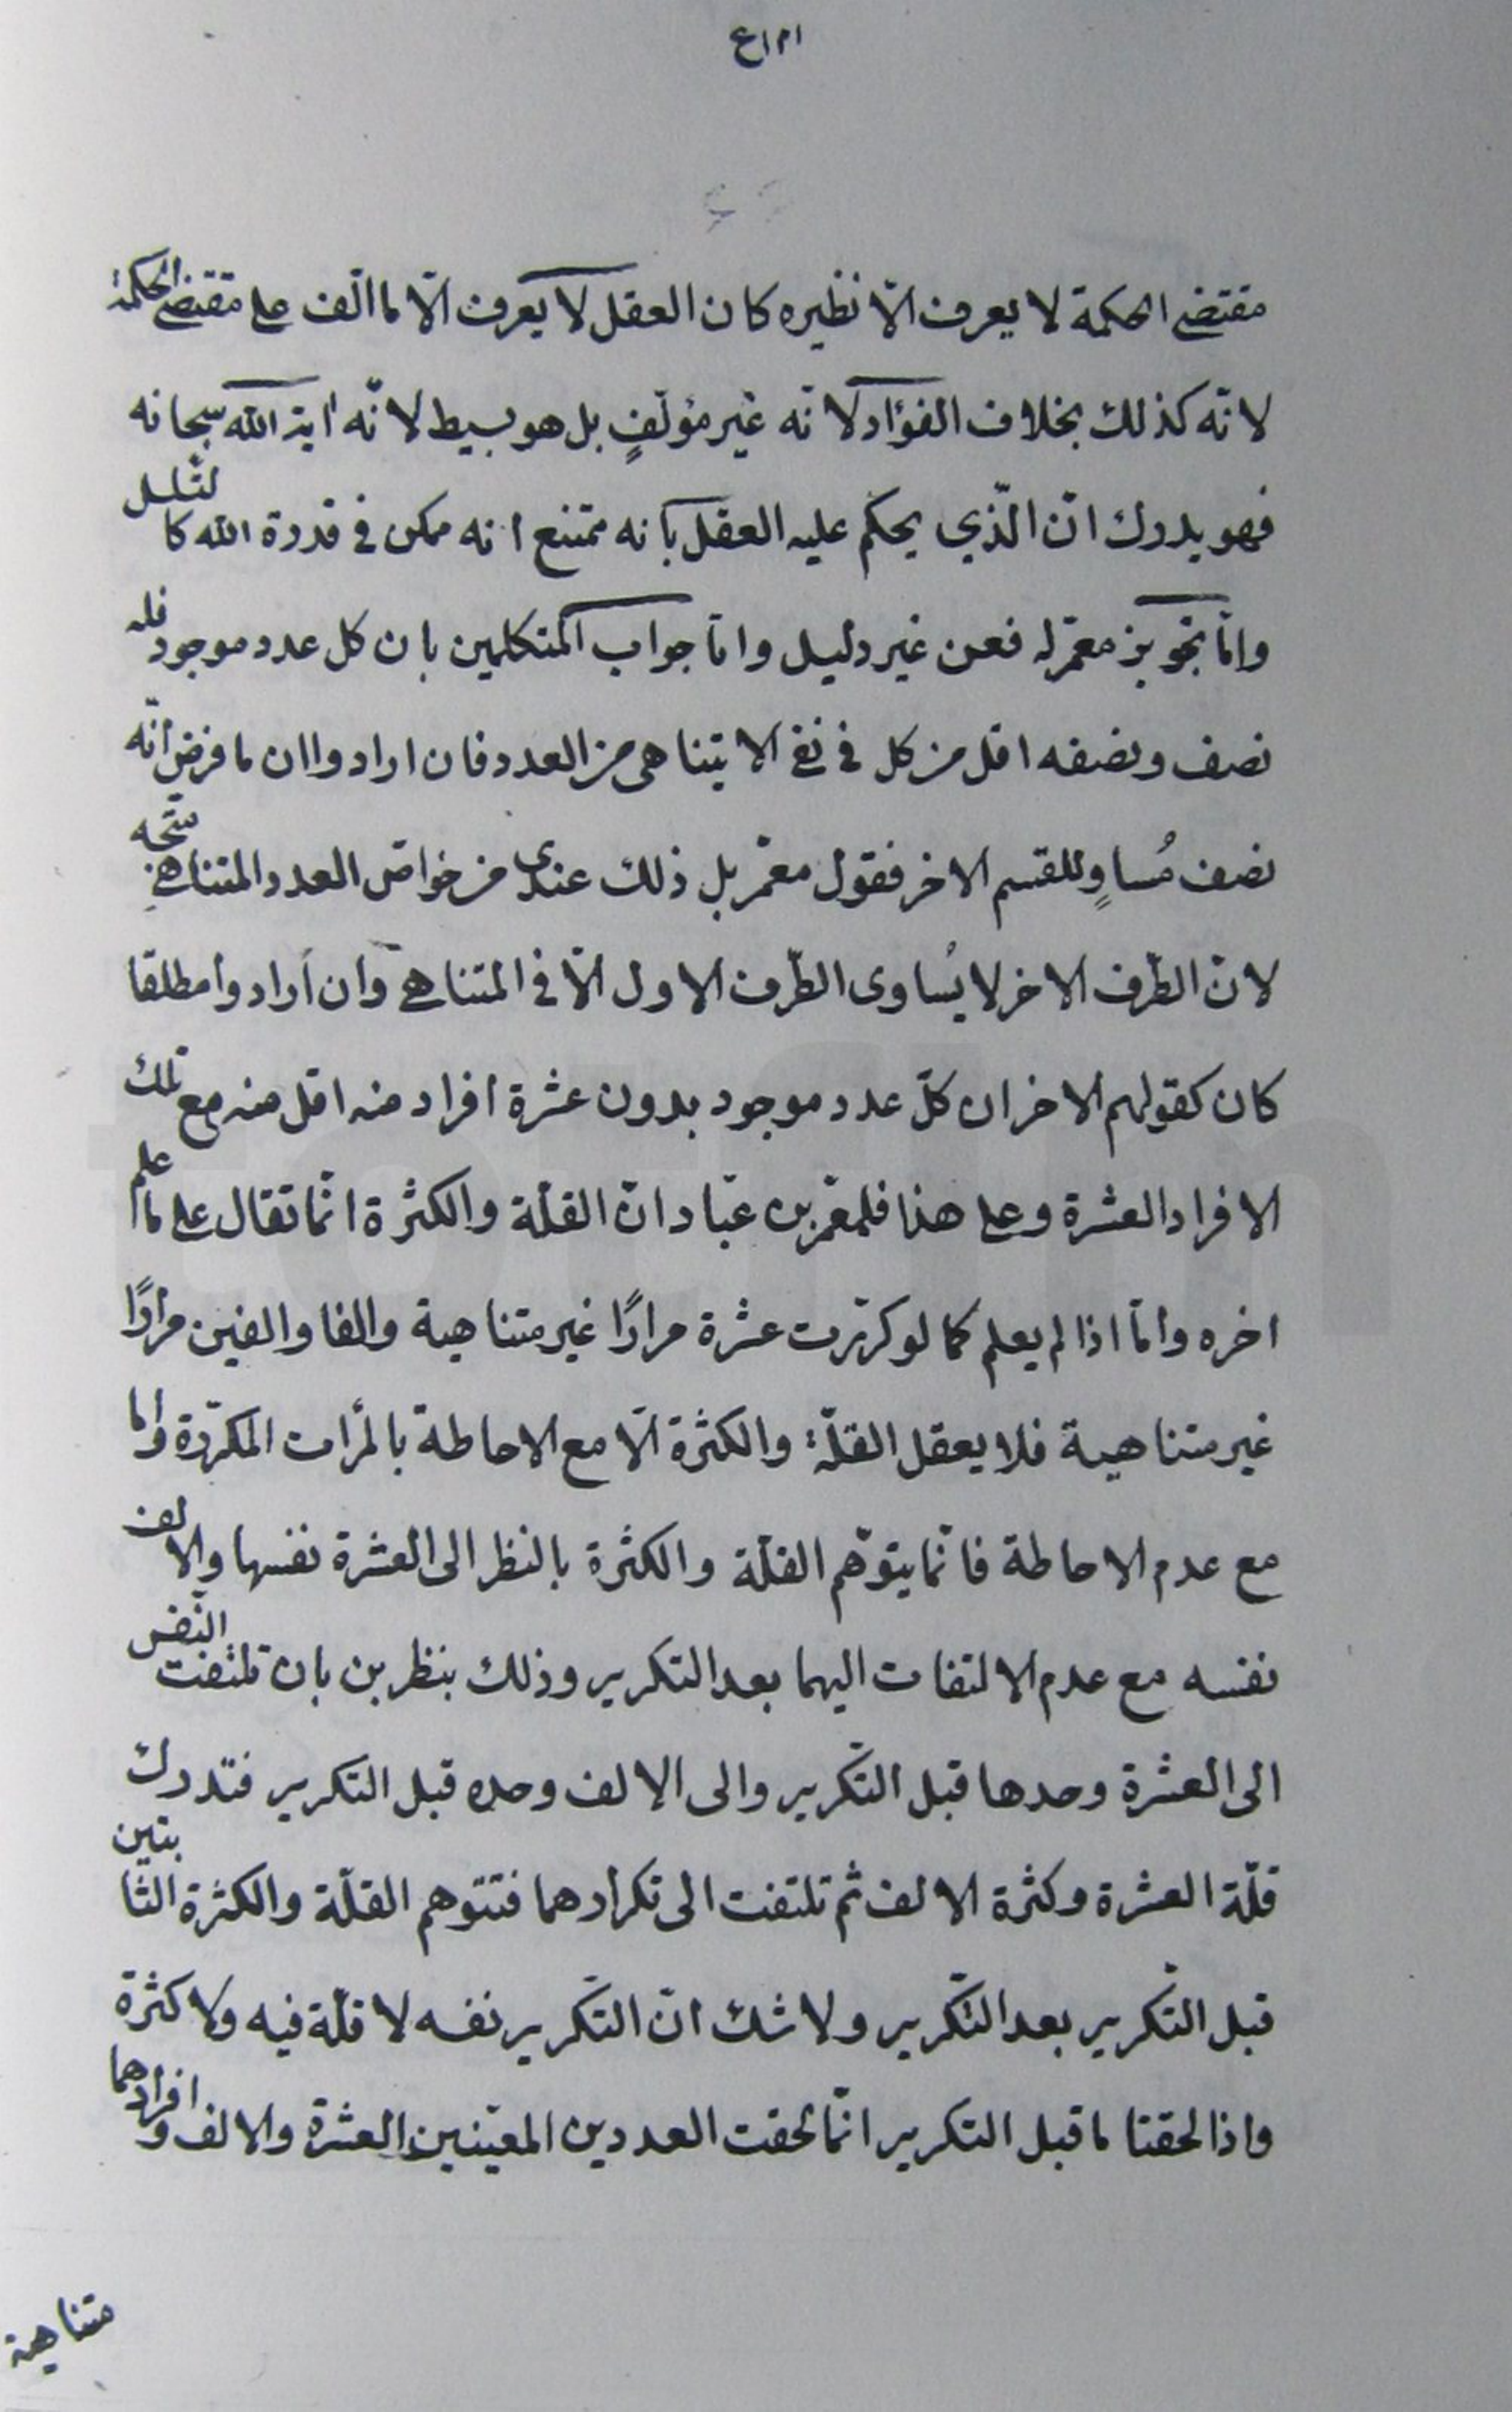 مقتضى الحكمة لا يعرف الّا نظيره كان العقل لا يعرف الّا ما الّف على مقتضى الحكمة
لانّه كذلك بخلاف الفؤاد لانّه غير مؤلّفٍ بل هو بسيط لانّه اية الله سبحانه
فهو يدرك انّ الّذي يحكم عليه العقل بانه ممتنع انه ممكن في قدرة الله كالتسلسل
وامّا تجويز معمّر له فعن غير دليل وامّا جواب المتكلمين بان كل عدد موجود فله
نصف ونصفه اقل من كل في نفى الا يتناهى من العدد فان ارادوا ان ما فرض انّه
نصف مُساوٍ للقسم الاخر فقول معمّر بل ذلك عندى من خواصّ العدد المتناهى متّجه
لانّ الطّرف الاخر لا يُساوى الطّرف الاول الّا في المتناهى وان أرادوا مطلقا
كان كقولهم الاخر ان كلّ عدد موجود بدون عشرة افراد منه اقل منه مع تلك
الافراد العشرة وعلى هذا فلمعمّر بن عبّاد انّ القلّة والكثرة انّما تقال على ما علم
اخره وامّا اذا لم يعلم كما لو كرّرت عشرة مرارًا غير متناهية والفا والفين مرارًا
غير متناهية فلا يعقل القلّة والكثرة الّا مع الاحاطة بالمرّات المكرّرة واما
مع عدم الاحاطة فانّما يتوّهم القلّة والكثرة بالنظر الى العشرة نفسها والالف
نفسه مع عدم الالتفات اليهما بعد التكرير وذلك بنظرين بان تلتفت النّفس
الى العشرة وحدها قبل التّكرير والى الالف وحده قبل التكرير فتدرك
قلّة العشرة وكثرة الالف ثم تلتفت الى تكرارهما فتتوهم القلّة والكثرة الثابتين
قبل التّكرير بعد التّكرير ولا شك انّ التّكرير نفسه لا قلّة فيه ولا كثرة
واذا لحقتا ما قبل التكرير انّما لحقت العددين المعيّنين العشرة والالف وافرادهما
متناهية